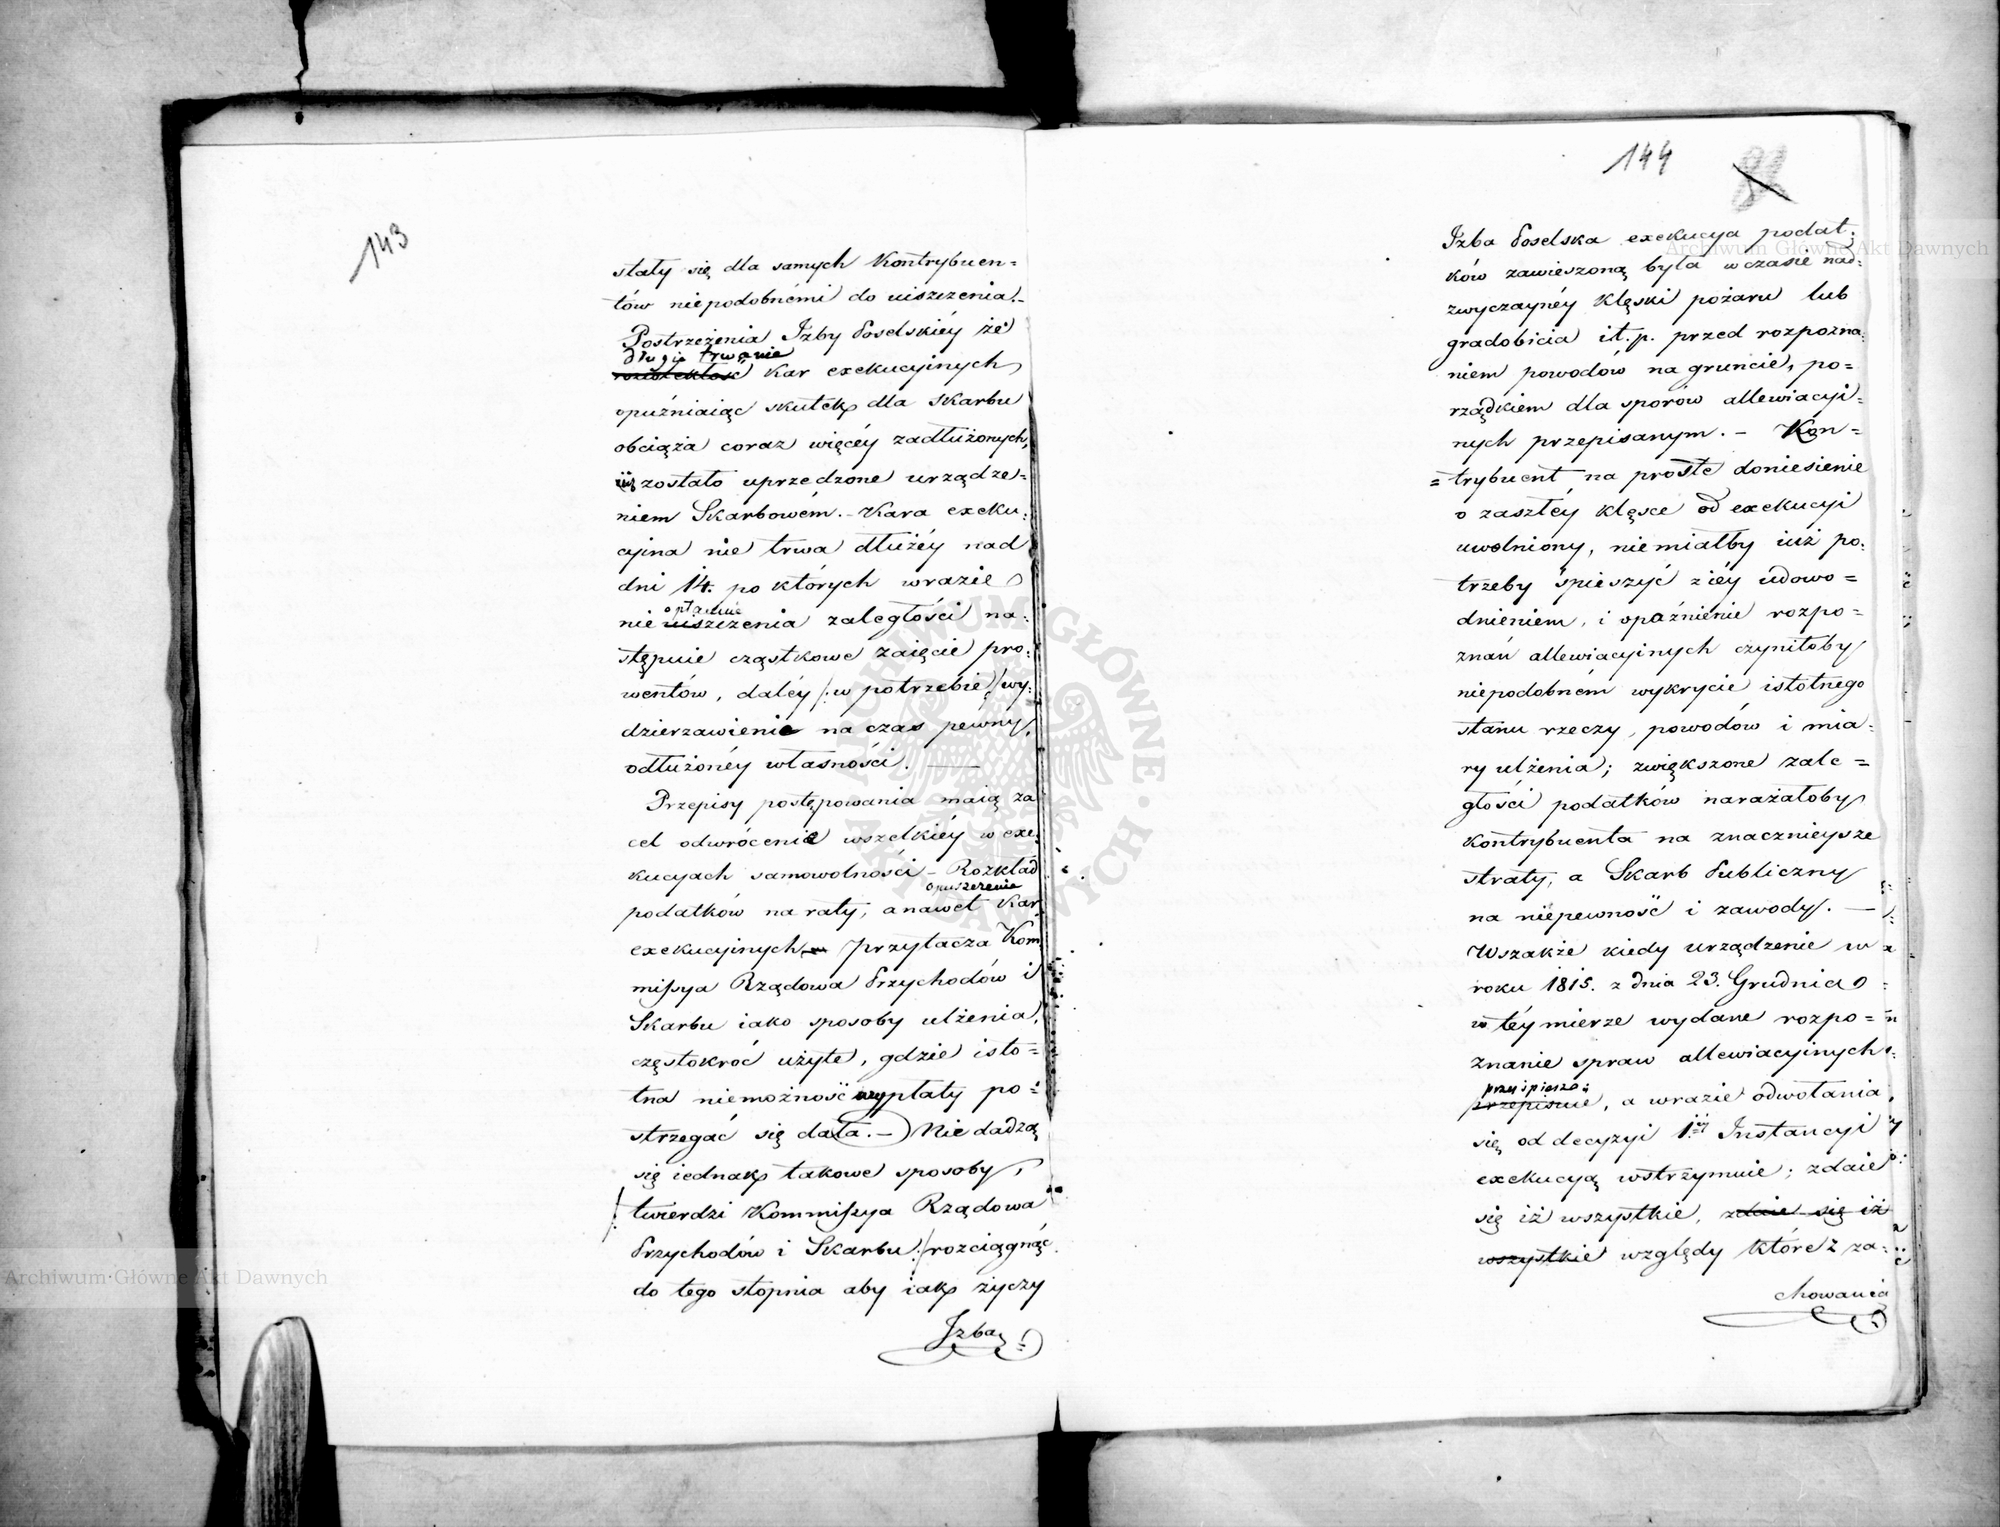 143
stały się dla samych Kontrybuen=
tów niepodobnémi do uiszczenia.-
Postrzeżenia Izby Poselskiéy że
długie trwanie
rozwlekłość kar exekucyinych
opuźniaiąc skutek dla Skarbu
obciąża coraz więcéy zadłużonych,
iuż zostało uprzedzone urządze=
niem Skarbowém.- Kara exeku=
cyina nie trwa dłużéy nad
dni 14. po których wrazie
opłacenia
nie uiszczenia zaległości na=
stępuie cząstkowe zaięcie pro=
wentów, daléy /: w potrzebie :/ wy=
dzierzawienie na czas pewny
odłużonéy własności. —
Przepisy postępowania maią za
cel odwrócenie wszelkiéy w exe=
kucyach samowolności - Rozkład
opuszczenie
podatków na raty, a nawet Kar
exekucyinych przytacza Kom
missya Rządowa Przychodów i
Skarbu iako sposoby ulżenia,
częstokroć użyte, gdzie isto=
tna niemożność wypłaty po=
strzegać się dała. - Nie dadzą
się iednak takowe sposoby,
/: twierdzi Kommissya Rządowa
Przychodów i Skarbu :/ rozciągnąć
do tego stopnia aby iak życzy
Izba
144
82
Izba Poselska exekucya podat=
ków zawieszoną była w czasie nad=
zwyczaynéy klęski pożaru lub
gradobicia i t. p. przed rozpozna=
niem powodów na gruncie, po=
rządkiem dla sporów allewiacyi=
nych przepisanym. - Kon=
=trybuent na proste doniesienie
o zaszłéy klęsce od exekucyi
uwolniony, niemiałby iuż po=
trzeby śpieszyć z iéy udowo=
dnieniem, i opaźnienie rozpo=
znań allewiacyinych czyniłoby
niepodobném wykrycie istotnego
stanu rzeczy, powodów i mia=
ry ulżenia; zwiększone zale=
głości podatków narażałoby
kontrybuenta na znacznieysze
straty, a Skarb Publiczny
na niepewność i zawody. —
Wszakże kiedy urządzenie w
roku 1815. z dnia 23. Grudnia
w téy mierze wydane rozpo=
znanie spraw allewiacyinych
przyśpiesza
przepisuie, a wrazie odwołania
się od decyzyi 1.éy Instancyi
exekucyą wstrzymuie; zdaie
się iż wszystkie, zdaie się iż
wszystkie względy które z za=
chowania
Archiwum Główne Akt Dawnych
Archiwum Główne Akt Dawnych
ARCHIWUM GŁÓWNE AKT DAWNYCH